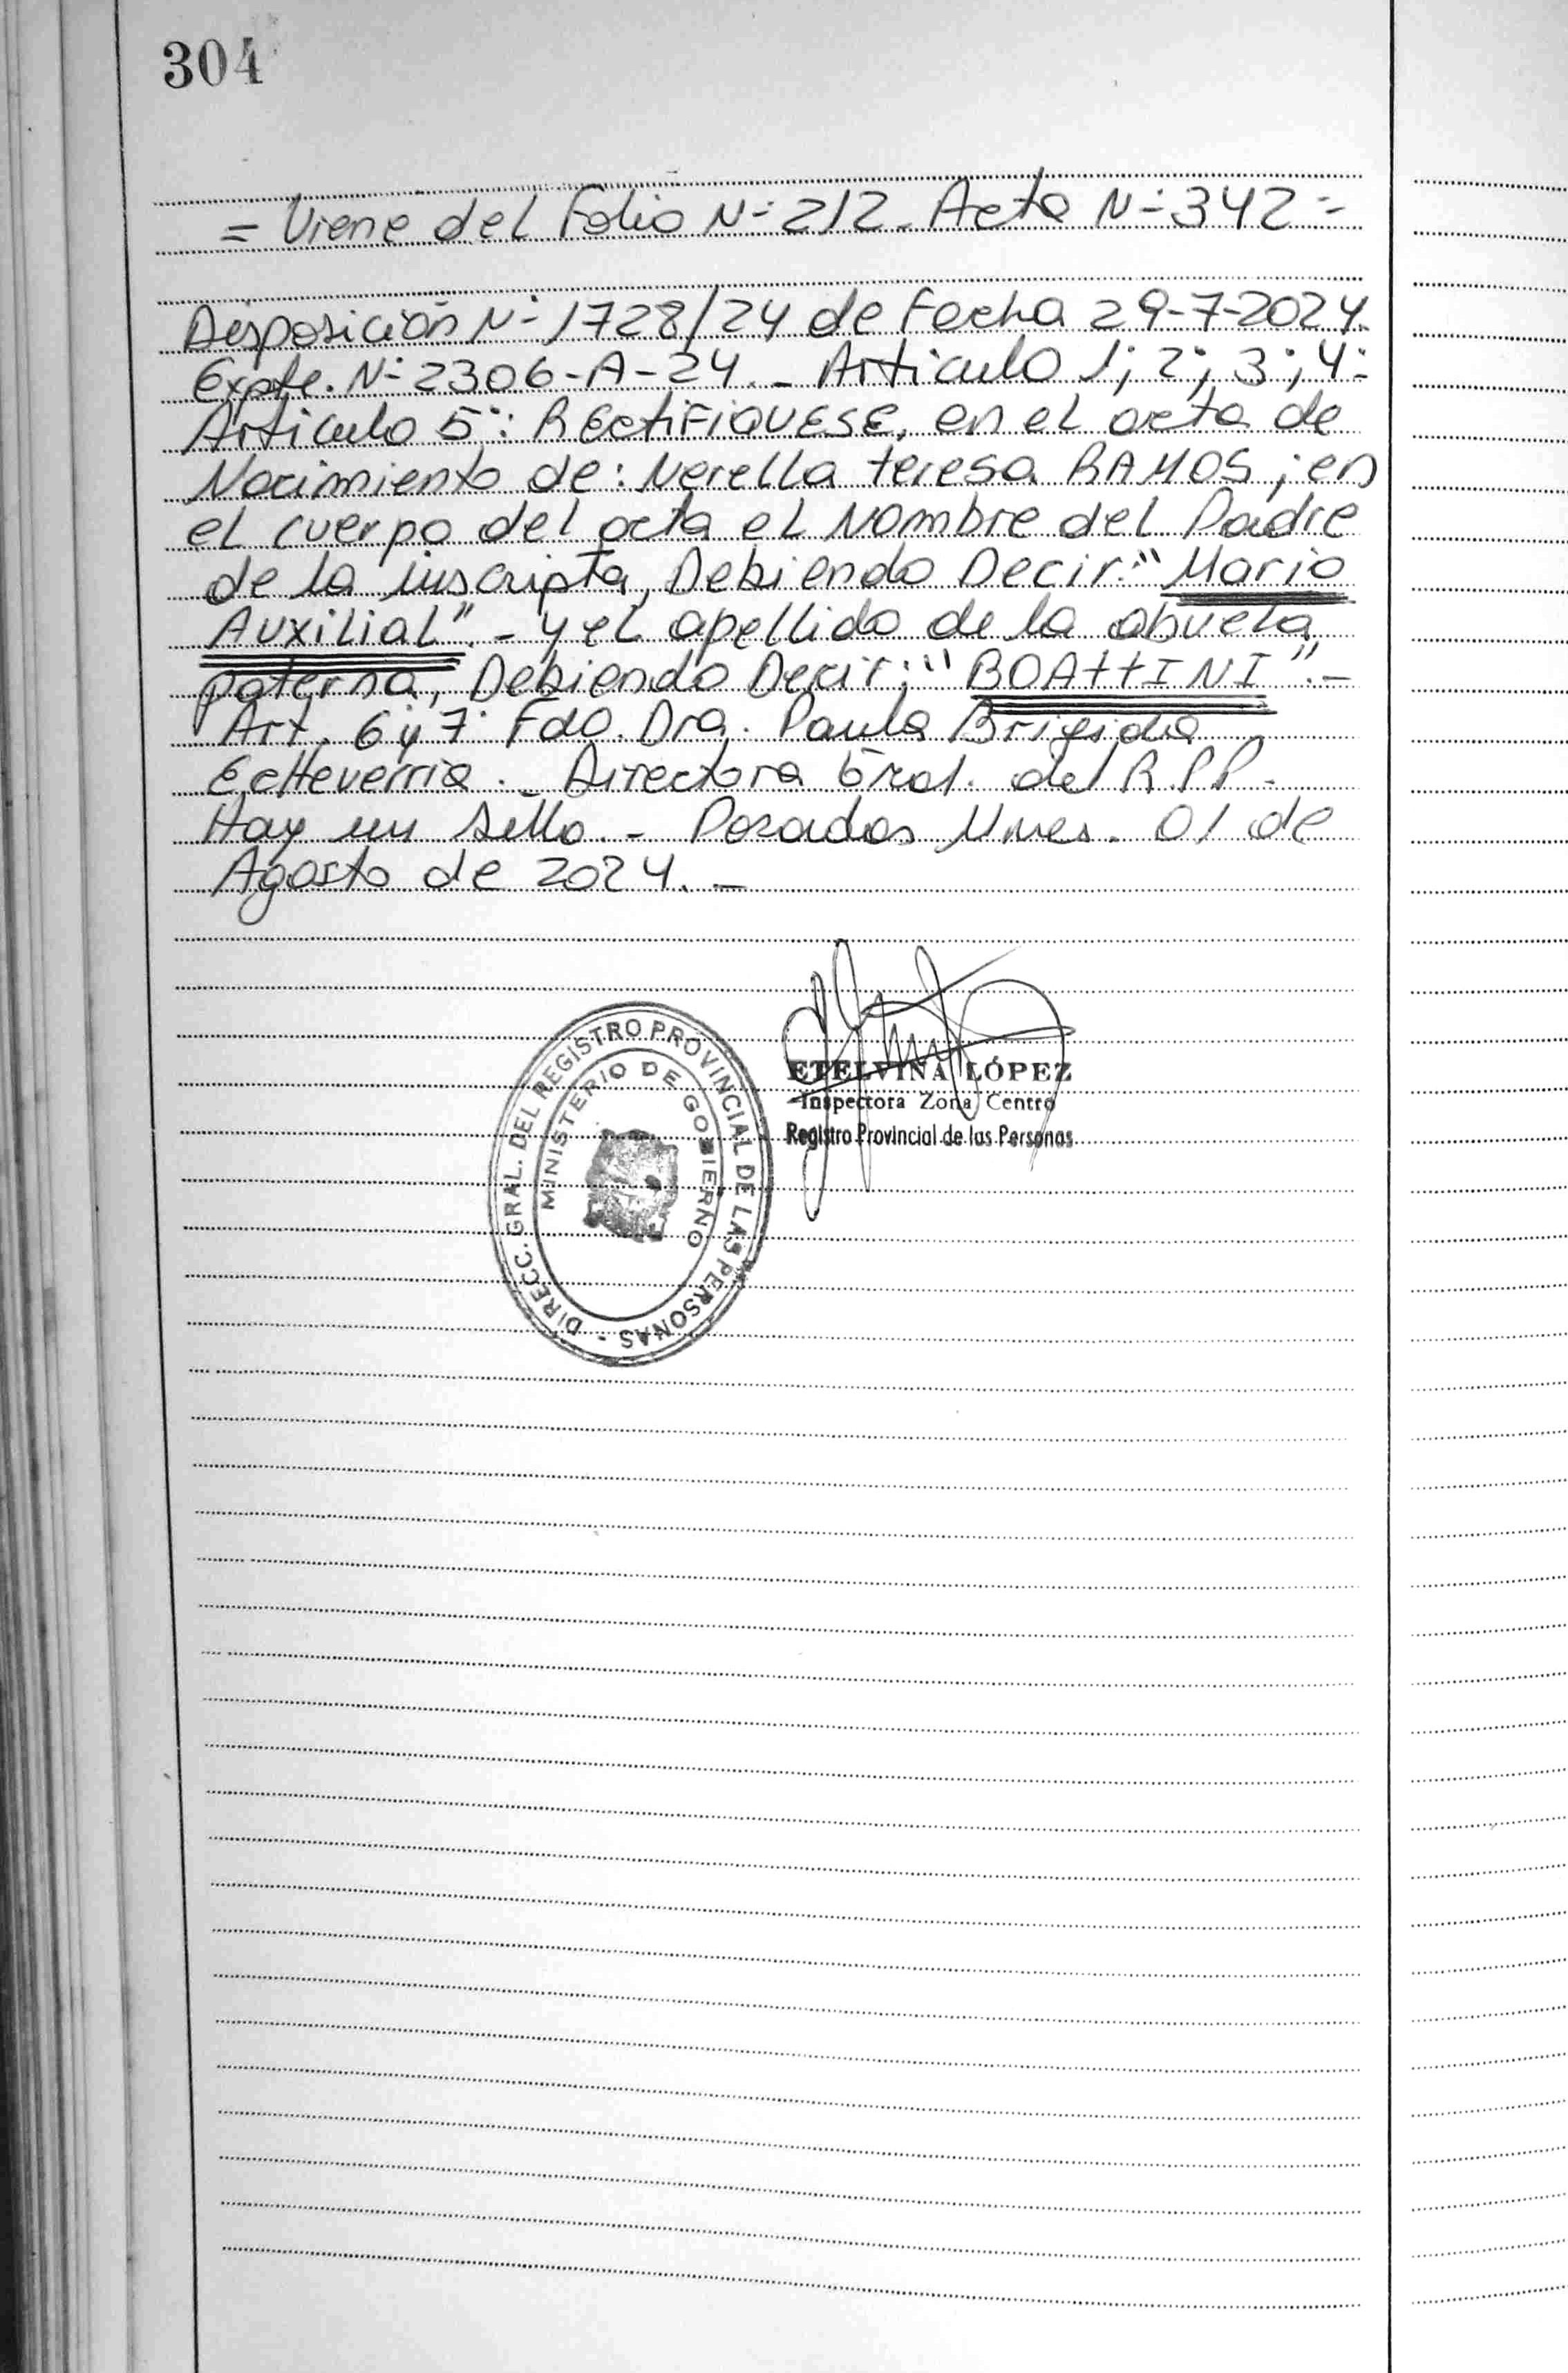 304
= Viene del Folio N-° 212. Acta N-° 342 =
Disposición N-° 1728/24 de Fecha 29-7-2024.
Expte. N-° 2306-A-24. _ Articulo 1°; 2°; 3°; 4°.
Articulo 5°: RECtiFIQUESE, en el acta de
Nacimiento de: Nerella teresa RAMOS; en
el cuerpo del acta el Nombre del Padre
de la inscripta, Debiendo Decir: "Mario
AUXILIAL". - y el apellido de la abuela
paterna, Debiendo Decir: "BOAttINI". -
Art. 6 y 7° Fdo. Dra. Paula Brigida
Echeverria. _ Directora Gral. del R.P.P. -
Hay un sello. - Posadas Mnes. 01 de
Agosto de 2024. _
DIRECC. GRAL. DEL REGISTRO PROVINCIAL DE LAS PERSONAS -
MINISTERIO DE GOBIERNO
ETELVINA LÓPEZ
Inspectora Zona Centro
Registro Provincial de las Personas